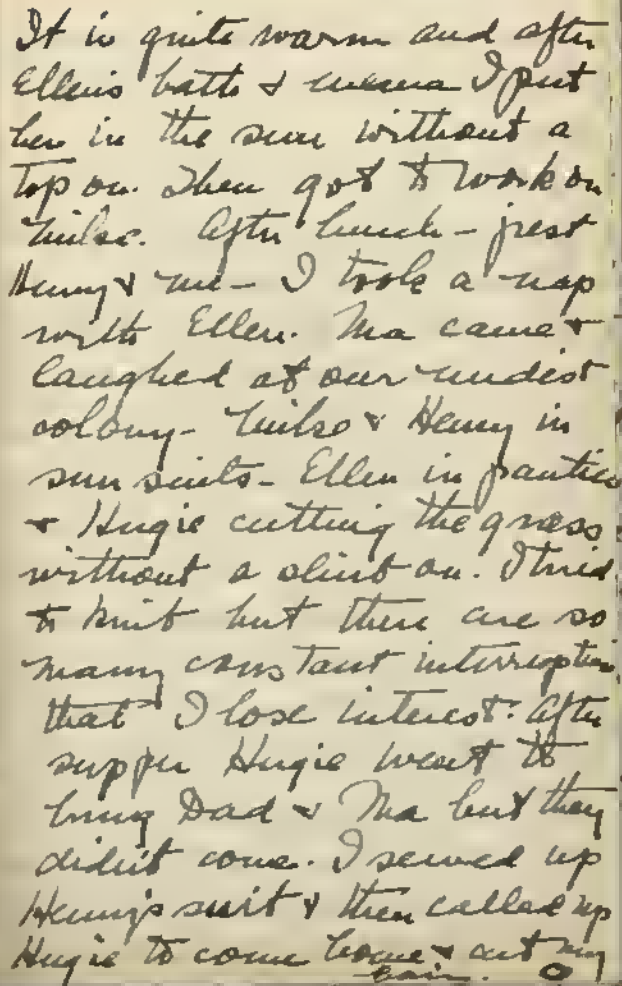 It is quite warm and after
Ellen's bath & enema I put
her in the sun without a
top on. Then got to work on
Milse. After lunch - jest
Henry & me - I took a nap
with Ellen. Ma came &
laughed at our nudist
colony - Milse & Henry in
sun suits - Ellen in panties
& Hugie cutting the grass
without a shirt on. I tried
to knit but there are so
many constant interruptions
that I lose interest. After
supper Hugie went to
bring Dad & Ma but they
didn't come. I sewed up
Henny's suit & then called up
Hugie to come home & cut my
hair.